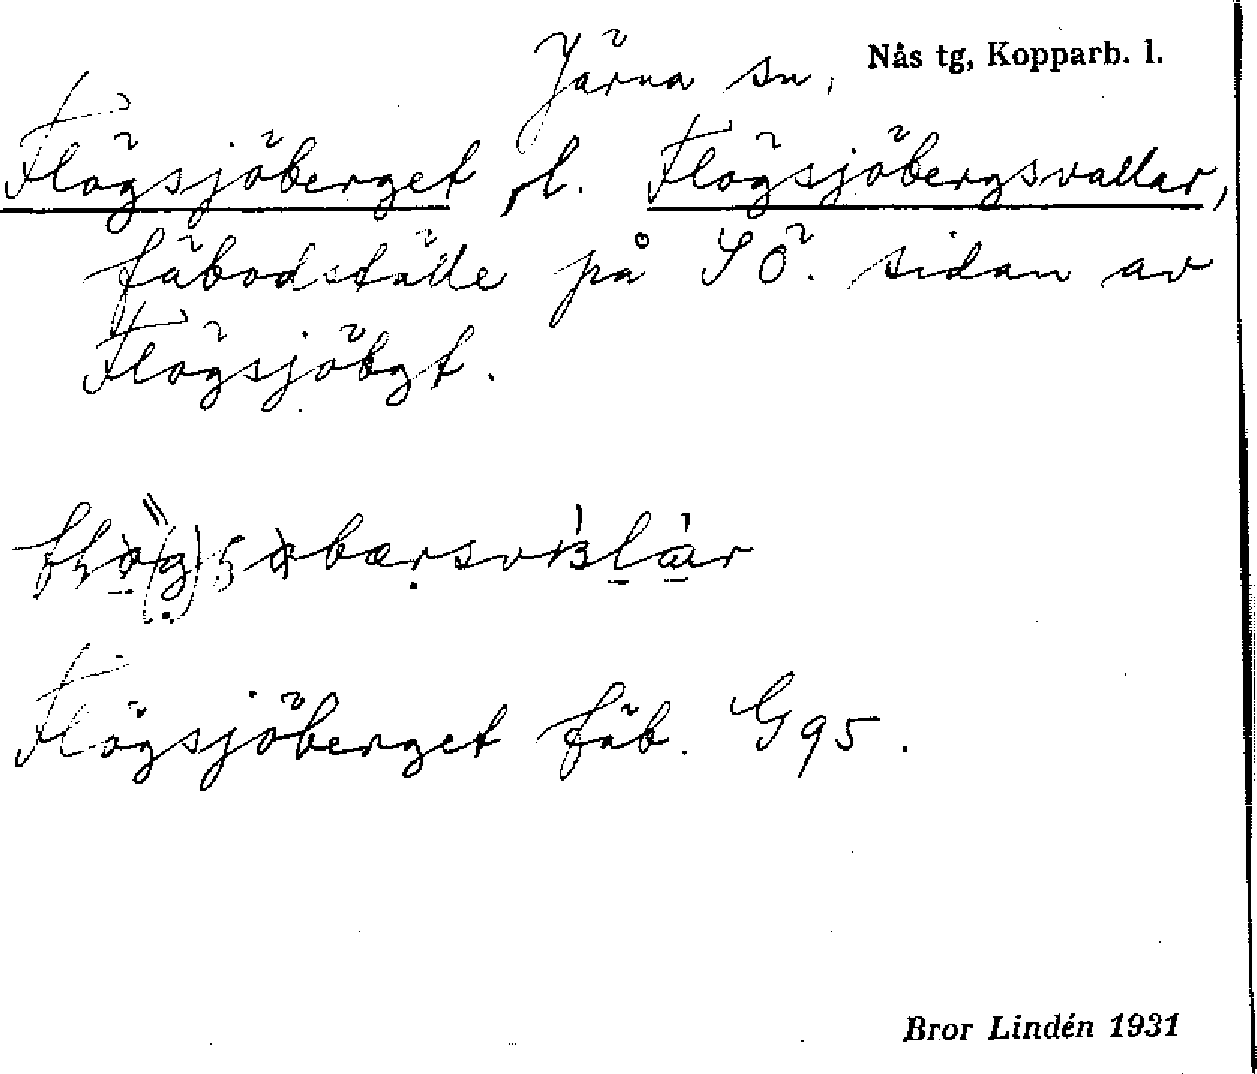 Järna sn, Nås tg, Kopparb. l.
Flögsjöberget, l. Flögsjöbergsvallar,
fäbodställe på SÖ. sidan av
Flögsjöbgt.
Flögsjöberget fäb. G95.
Bror Lindén 1931